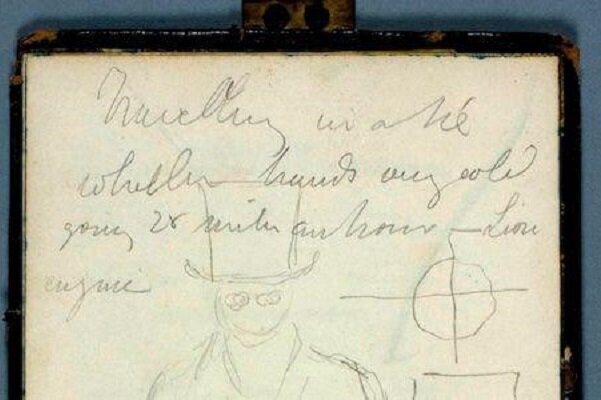 Travelling in a
whether hands very cold
going 28 miles an hour – Lion
engine